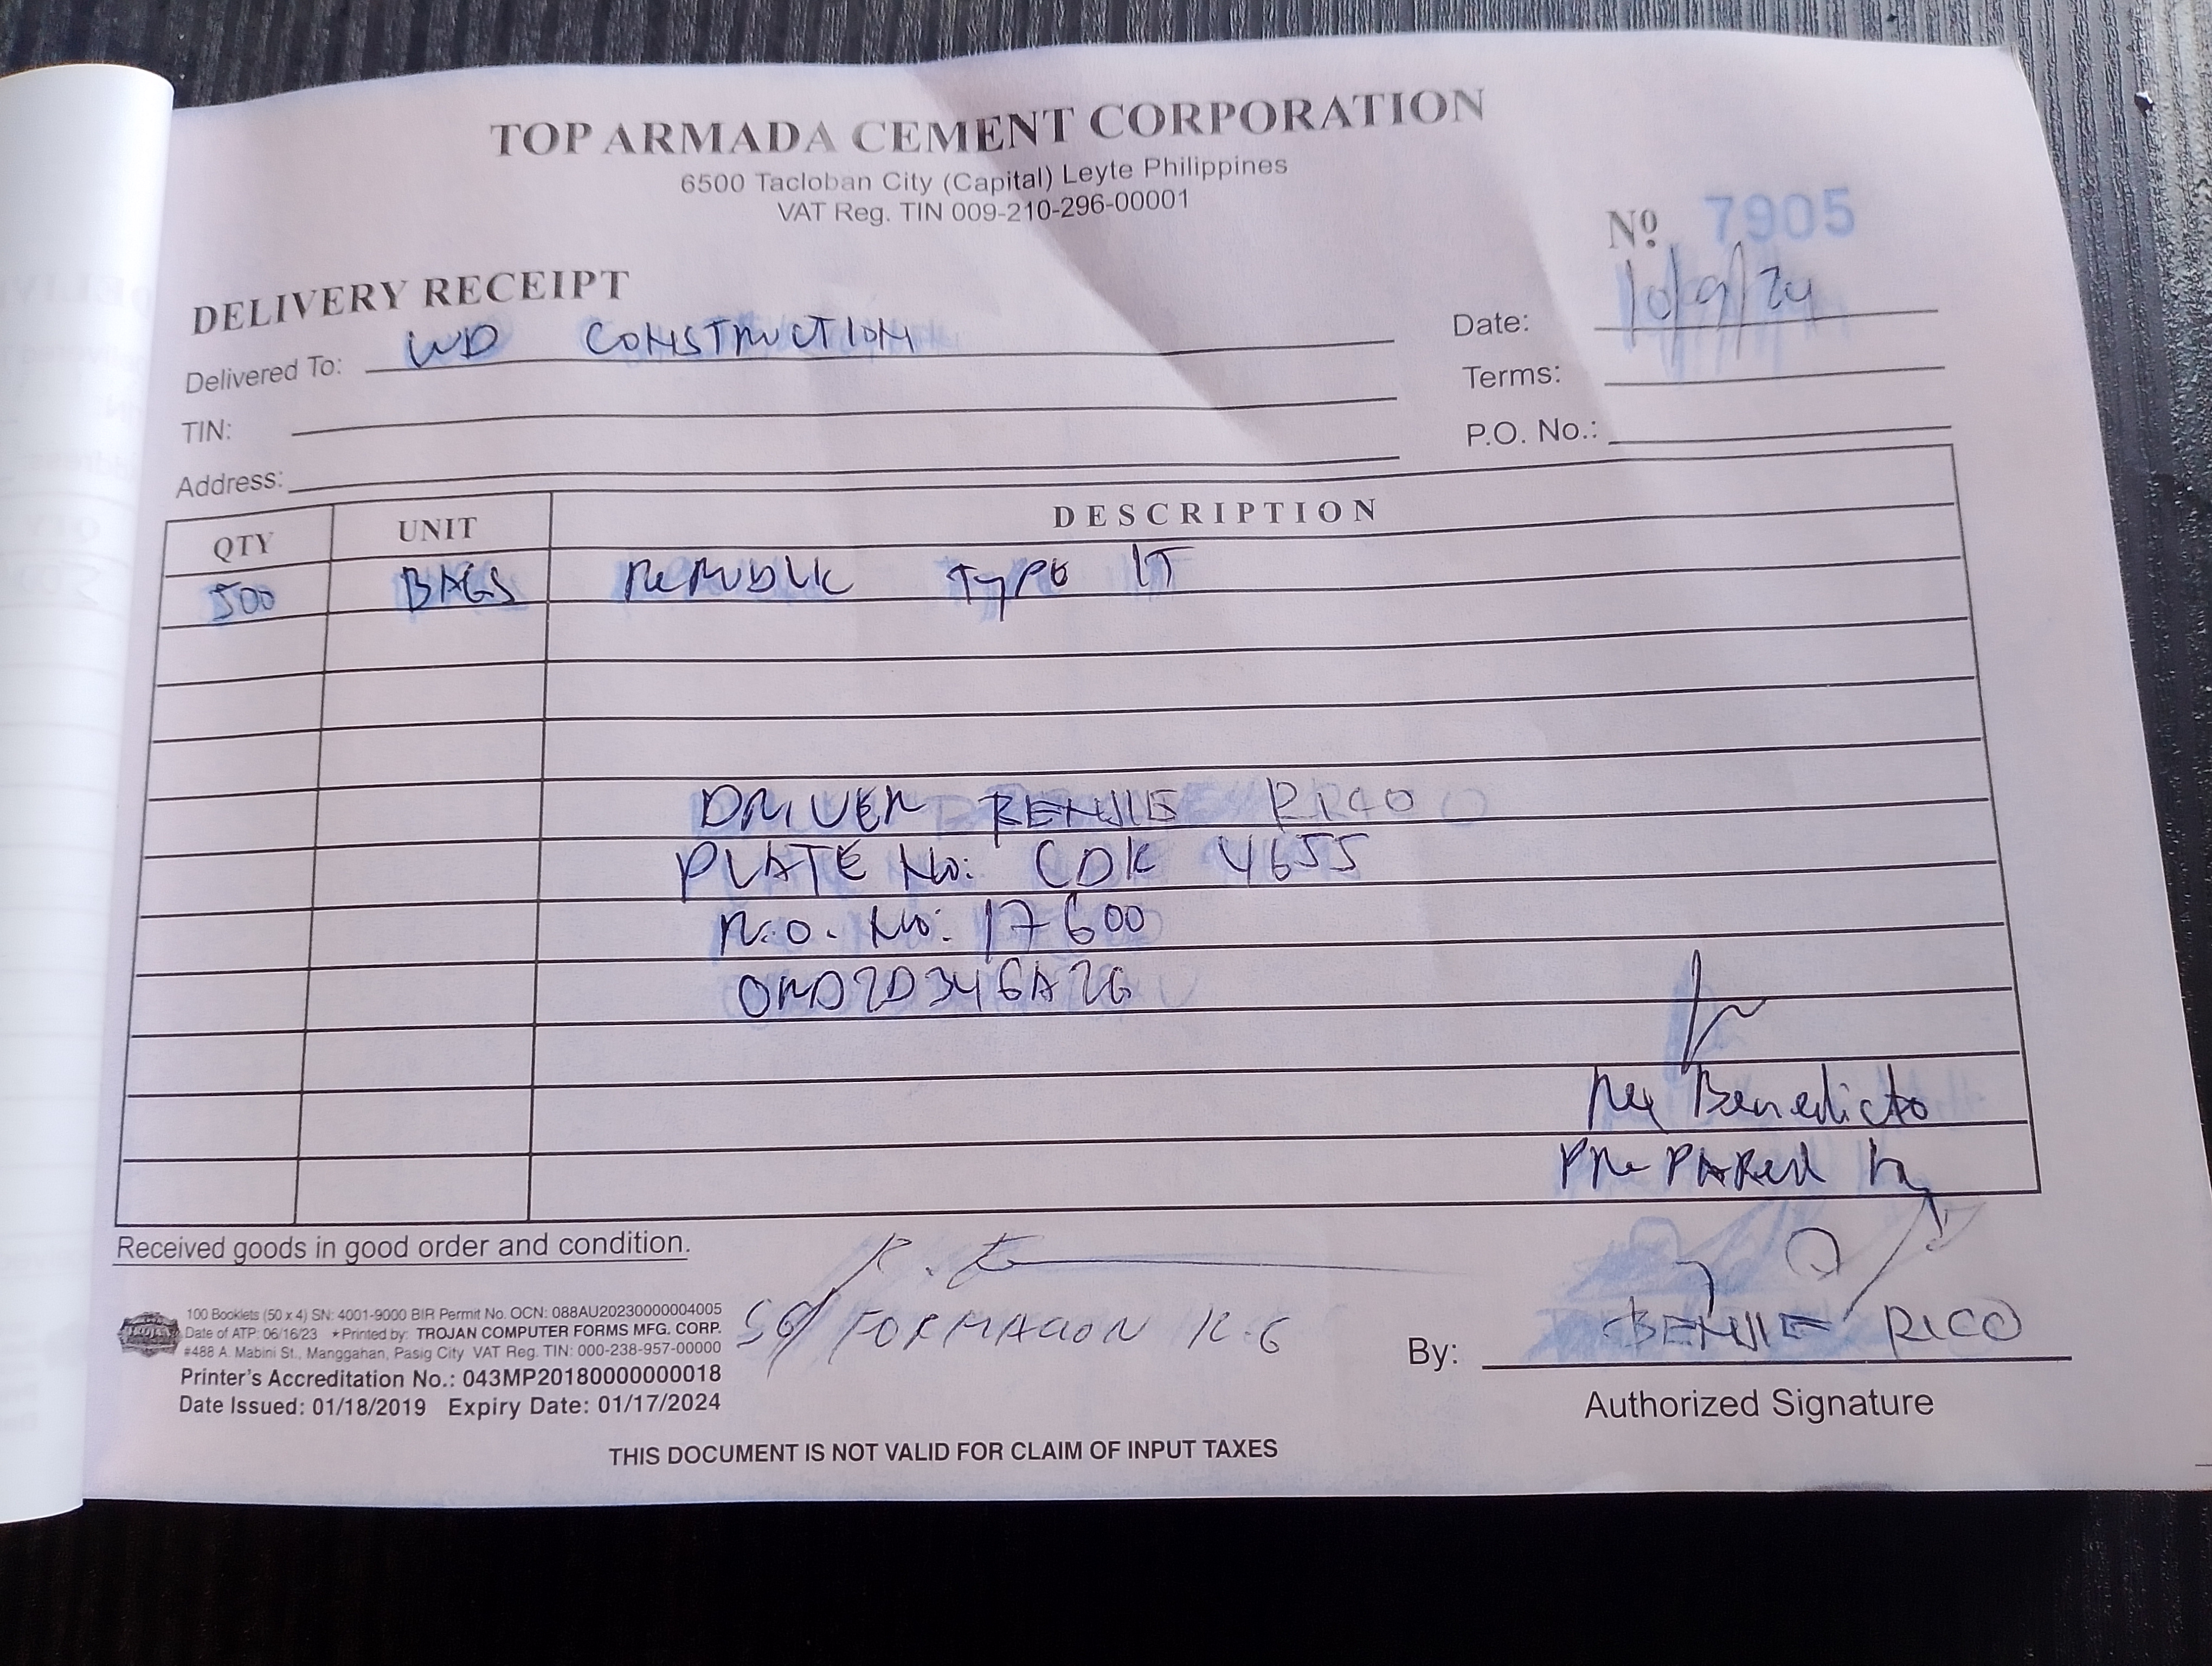 TOP ARMADA CEMENT CORPORATION
6500 Tacloban City (Capital) Leyte Philippines
VAT Reg. TIN 009-210-296-00001
Nº 7905
DELIVERY RECEIPT
Delivered To: WD CONSTRUCTION
Date: 10/9/24
TIN:
Terms:
Address:
P.O. No.:
QTY UNIT DESCRIPTION
500 BAGS REPUBLIC TYPE 1T
DRIVER BENJIE RICO
PLATE No: CDK 4655
R.O. No: 17600
ORD2D346A26
Rex Benedicto
PREPARED by
Received goods in good order and condition.
SG FORMACION R.G
By: BENJIE RICO
Authorized Signature
TROJAN
100 Booklets (50 x 4) SN: 4001-9000 BIR Permit No. OCN: 088AU20230000004005
Date of ATP: 06/16/23 ★Printed by: TROJAN COMPUTER FORMS MFG. CORP.
#488 A. Mabini St., Manggahan, Pasig City VAT Reg. TIN: 000-238-957-00000
Printer's Accreditation No.: 043MP20180000000018
Date Issued: 01/18/2019 Expiry Date: 01/17/2024
THIS DOCUMENT IS NOT VALID FOR CLAIM OF INPUT TAXES